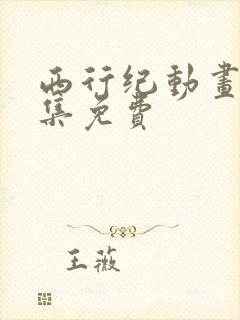 西行纪動畫
集免費
王薇